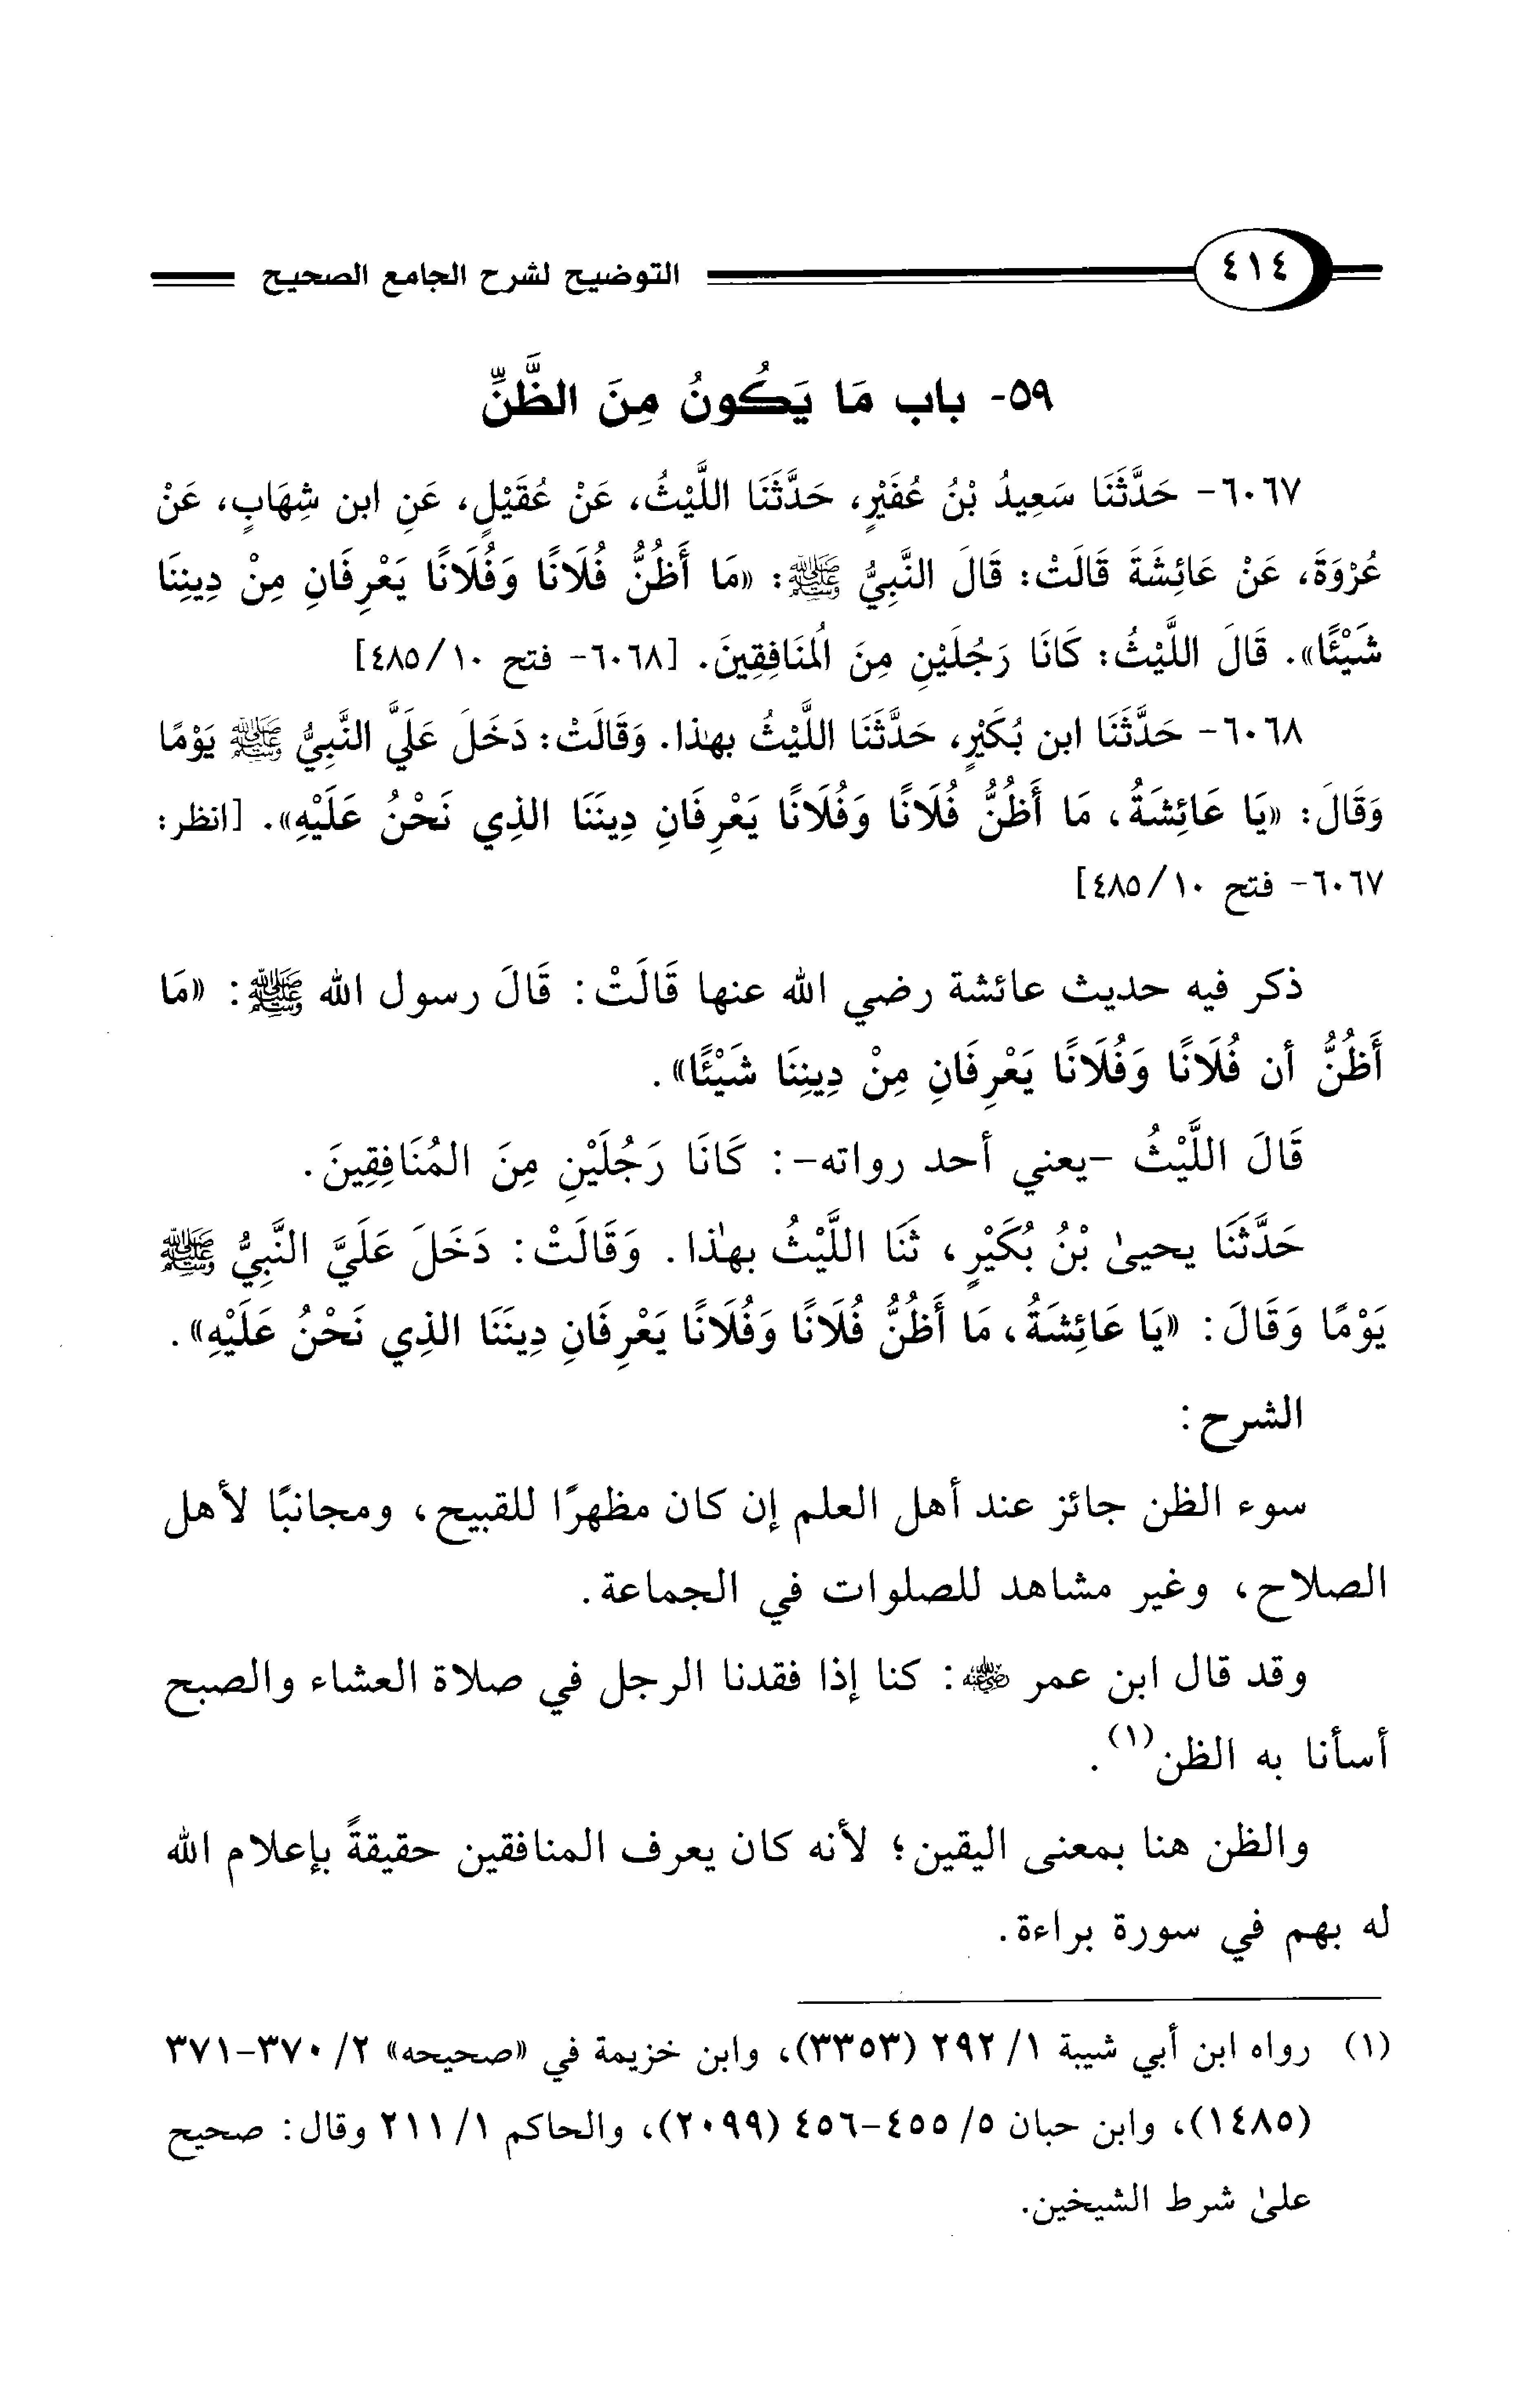 ٤١٤
التوضيح لشرح الجامع الصحيح
٥٩- باب مَا يَكُونُ مِنَ الظَّنِّ
٦٠٦٧- حَدَّثَنَا سَعِيدُ بْنُ عُفَيْرٍ، حَدَّثَنَا اللَّيْثُ، عَنْ عُقَيْلٍ، عَنِ ابن شِهَابٍ، عَنْ
عُرْوَةَ، عَنْ عَائِشَةَ قَالَتْ: قَالَ النَّبِيُّ ﷺ: «مَا أَظُنُّ فُلَانًا وَفُلَانًا يَعْرِفَانِ مِنْ دِينِنَا
شَيْئًا». قَالَ اللَّيْثُ: كَانَا رَجُلَيْنِ مِنَ الُمنَافِقِينَ. [٦٠٦٨- فتح ١٠/ ٤٨٥]
٦٠٦٨- حَدَّثَنَا ابن بُكَيْرٍ، حَدَّثَنَا اللَّيْثُ بهذا. وَقَالَتْ: دَخَلَ عَلَيَّ النَّبِيُّ ﷺ يَوْمًا
وَقَالَ: «يَا عَائِشَةُ، مَا أَظُنُّ فُلَانًا وَفُلَانًا يَعْرِفَانِ دِينَنَا الذِي نَحْنُ عَلَيْهِ». [انظر:
٦٠٦٧- فتح ١٠/ ٤٨٥]
ذكر فيه حديث عائشة رضي الله عنها قَالَتْ: قَالَ رسول الله ﷺ: «مَا
أَظُنُّ أن فُلَانًا وَفُلَانًا يَعْرِفَانِ مِنْ دِينِنَا شَيْئًا».
قَالَ اللَّيْثُ -يعني أحد رواته-: كَانَا رَجُلَيْنِ مِنَ المُنَافِقِينَ.
حَدَّثَنَا يحيىٰ بْنُ بُكَيْرٍ، ثَنَا اللَّيْثُ بهٰذا. وَقَالَتْ: دَخَلَ عَلَيَّ النَّبِيُّ ﷺ
يَوْمًا وَقَالَ: «يَا عَائِشَةُ، مَا أَظُنُّ فُلَانًا وَفُلَانًا يَعْرِفَانِ دِينَنَا الذِي نَحْنُ عَلَيْهِ».
الشرح:
سوء الظن جائز عند أهل العلم إن كان مظهرًا للقبيح، ومجانبًا لأهل
الصلاح، وغير مشاهد للصلوات في الجماعة.
وقد قال ابن عمر رضي الله عنه: كنا إذا فقدنا الرجل في صلاة العشاء والصبح
أسأنا به الظن(١).
والظن هنا بمعنى اليقين؛ لأنه كان يعرف المنافقين حقيقةً بإعلام الله
له بهم في سورة براءة.
(١) رواه ابن أبي شيبة ١/ ٢٩٢ (٣٣٥٣)، وابن خزيمة في «صحيحه» ٢/ ٣٧٠-٣٧١
(١٤٨٥)، وابن حبان ٥/ ٤٥٥-٤٥٦ (٢٠٩٩)، والحاكم ١/ ٢١١ وقال: صحيح
علىٰ شرط الشيخين.